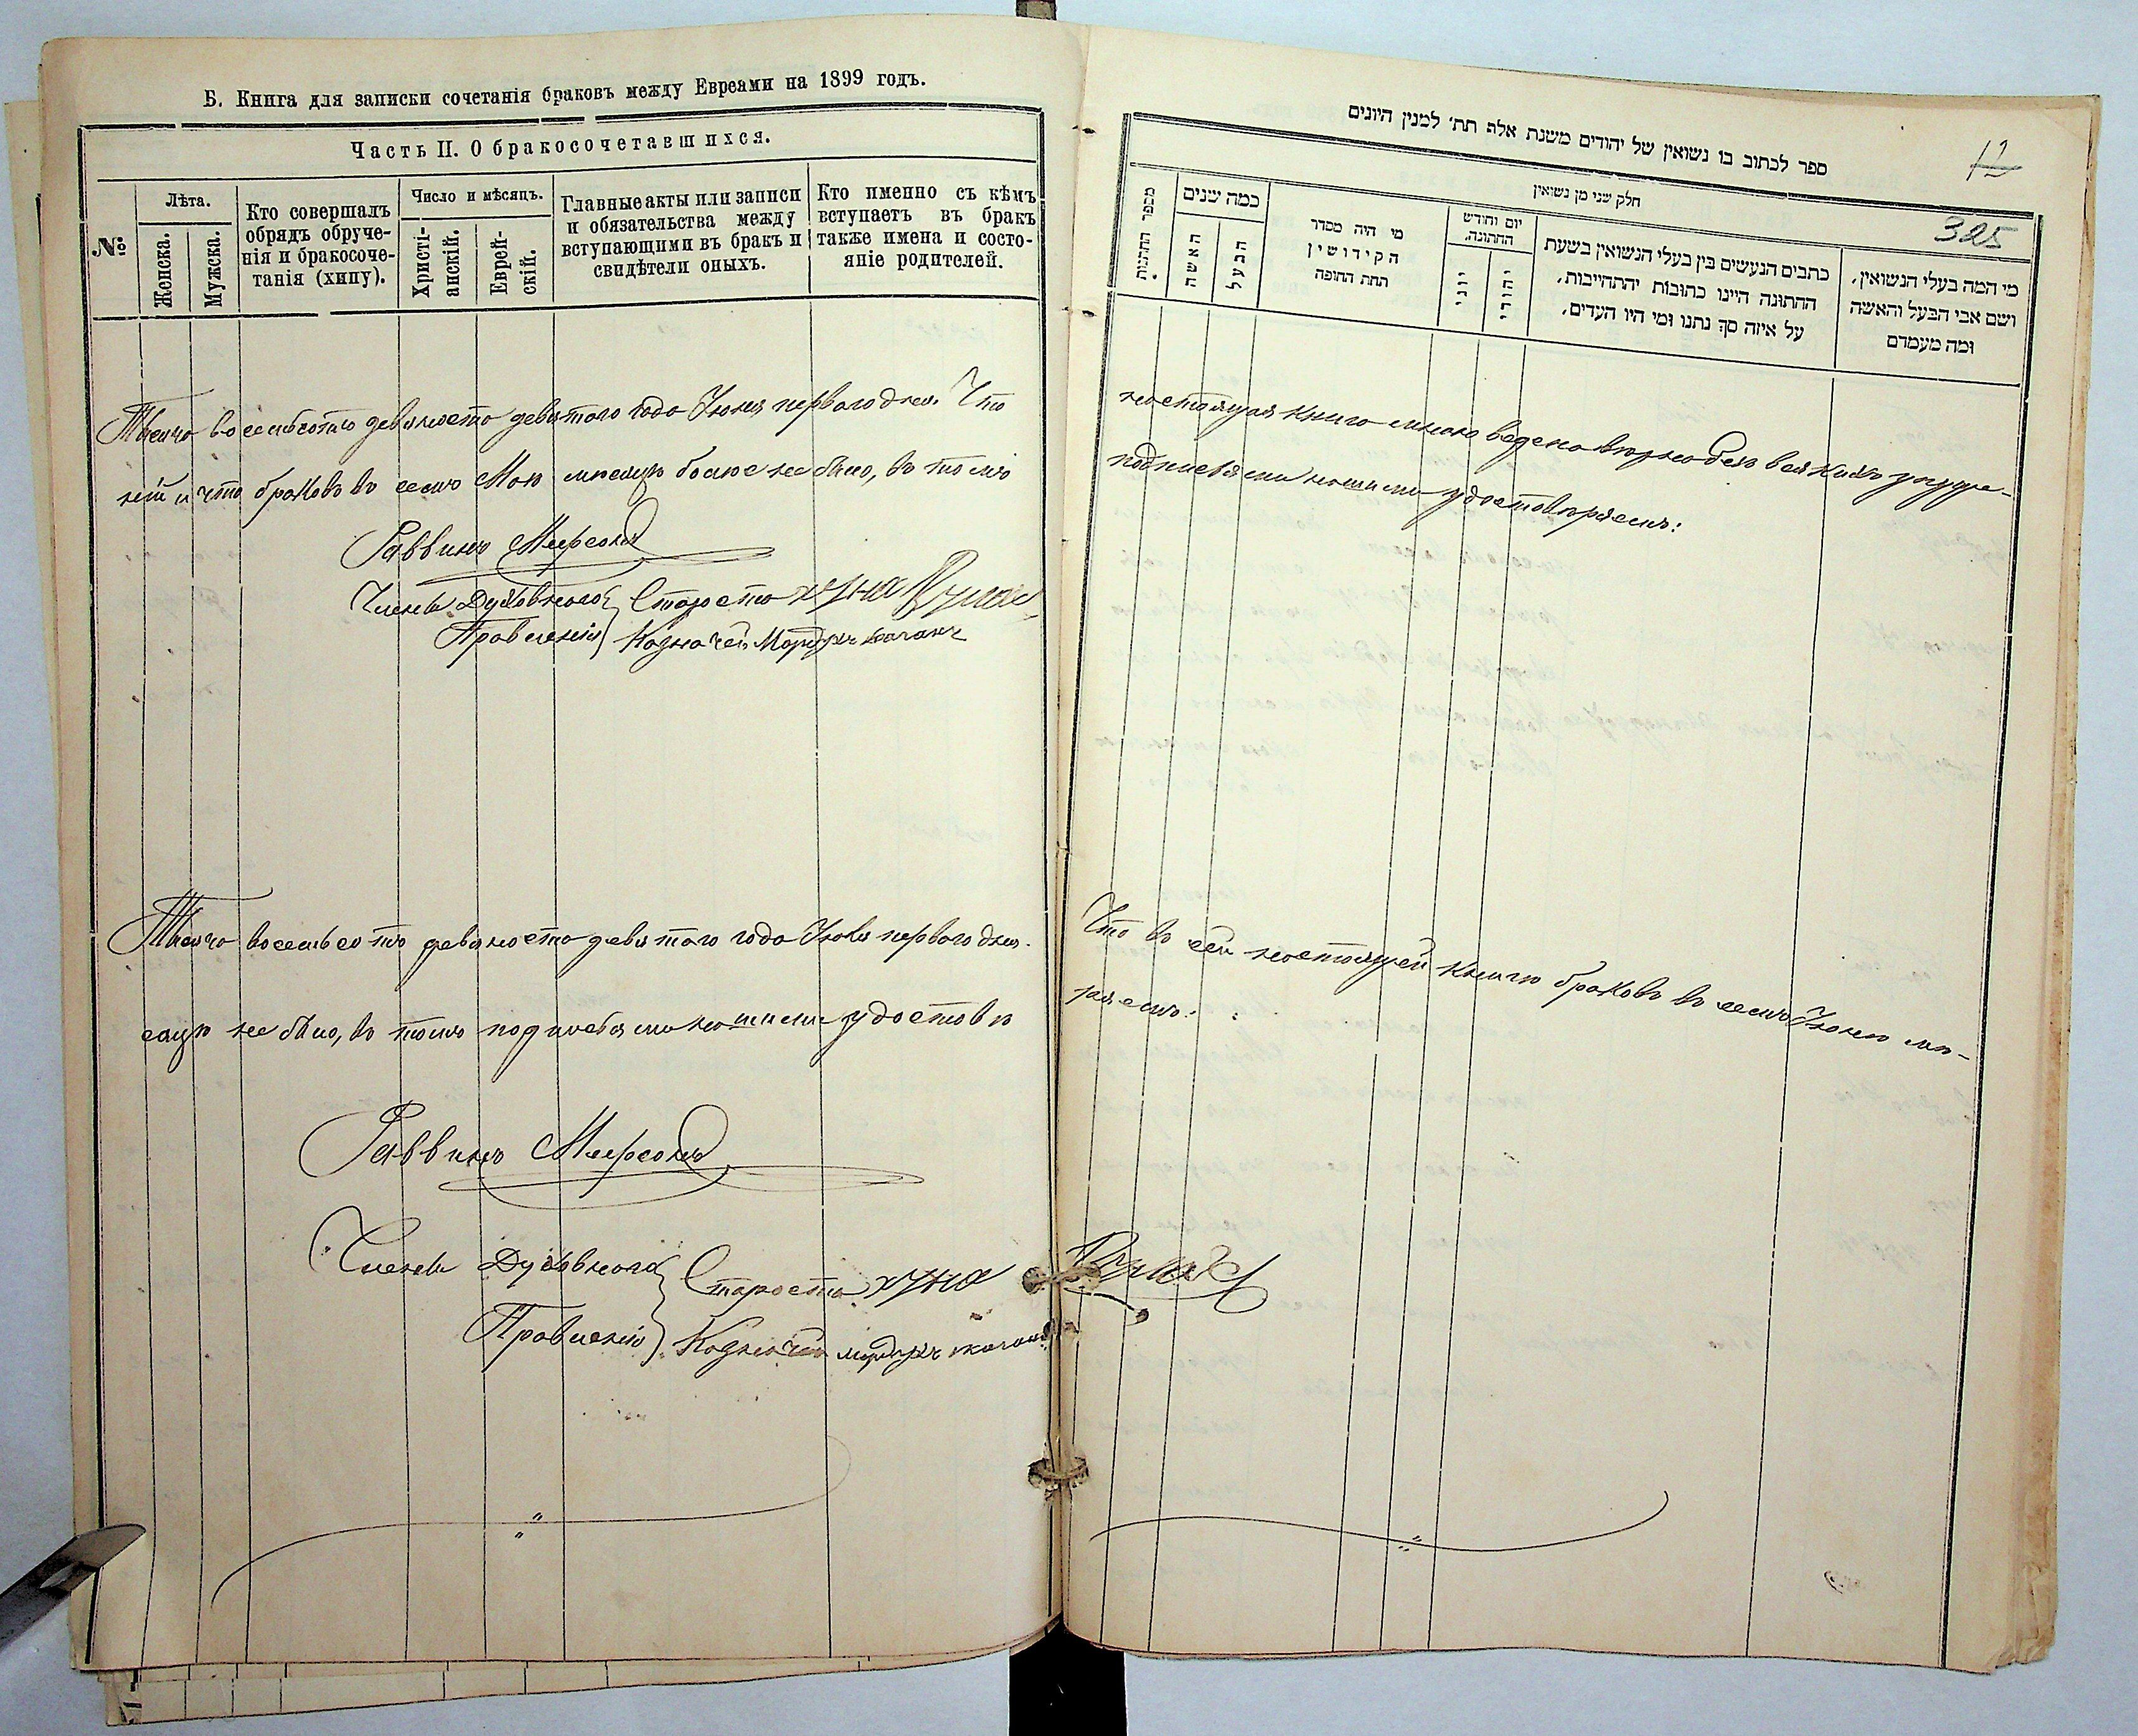 Б. Книга для записки сочетанія браковъ между Евреями на 1899 годъ.
Часть II. О бракосочетавшихся.
№
Лѣта.
Женска.
Мужска.
Кто совершалъ
обрядъ обруче-
нія и бракосоче-
танія (хипу).
Число и мѣсяцъ.
Христі-
анскій.
Еврей-
скій.
Главные акты или записи
и обязательства между
вступающими въ бракъ и
свидѣтели оныхъ.
Кто именно съ кѣмъ
вступаетъ въ бракъ
также имена и состо-
яніе родителей.
Тысяча восемьсотъ девяносто девятаго года Іюня перваго дня. Что
ній и что браковъ въ семъ Маѣ мѣсяцѣ болѣе не было, въ томъ
Раввинъ Меерсонъ
Члены Духовнаго Староста Хуна
Правленія Казначей
Тысяча восемьсотъ девяносто девятаго года Іюля перваго дня.
сяцѣ не было, въ томъ подписями нашими удостовѣ
Раввинъ Меерсонъ
Члены Духовнаго Староста Хуна
Правленія Казначей
ספר לכתוב בו נשואין של יהודים משנת אלף תת׳ למנין היונים
12
325
חלק שני מן נשואין
מספר החתנות
כמה שנים
האשה
הבעל
מי היה מסדר
הקידושין
תחת החופה
יום וחודש
החתונה.
יוני
יהודי
כתבים הנעשים בין בעלי הנשואין בשעת
החתונה היינו כתובות והתחייבות,
על איזה סך נתנו ומי היו העדים,
מי המה בעלי הנשואין,
ושם אבי הבעל והאשה
ומה מעמדם
настоящая книга мною ведена вѣрно безъ всякихъ упуще-
подписями нашими удостовѣряемъ:
Что въ сей настоящей книгѣ браковъ въ семъ Іюнѣ мѣ-
ряемъ: